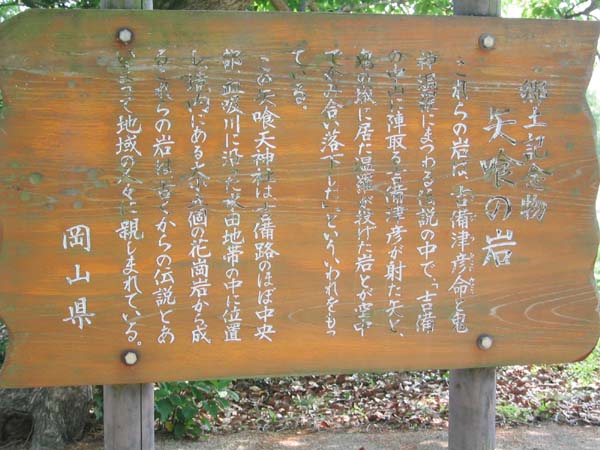 郷土記念物
矢喰の岩
これらの岩は、吉備津彦命と鬼
神温羅にまつわる伝説の中で、「吉備
の中山に陣取る吉備津彦が射た矢と、
鬼の城に居た温羅が投げた岩とが空中
でかみ合い落下した」といういわれをもっ
ている。
この矢喰天神社は吉備路のほぼ中央
部、血吸川に沿った水田地帯の中に位置
し、境内にある大小個の花崗岩から成
るこれらの岩は古くからの伝説とあ
いまって地域の人々に親しまれている。
岡山県